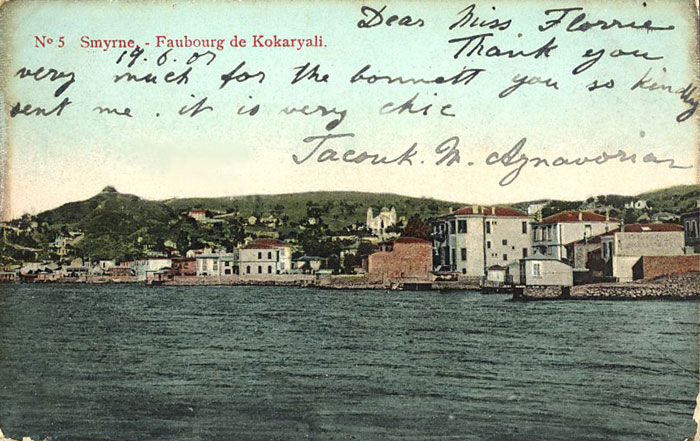 Nº 5 Smyrne. - Faubourg de Kokaryali.
Dear Miss Florrie
19.6.07 Thank you
very much for the bonnett you so kindly
sent me. it is very chic
Tacouk. M. Aznavorian